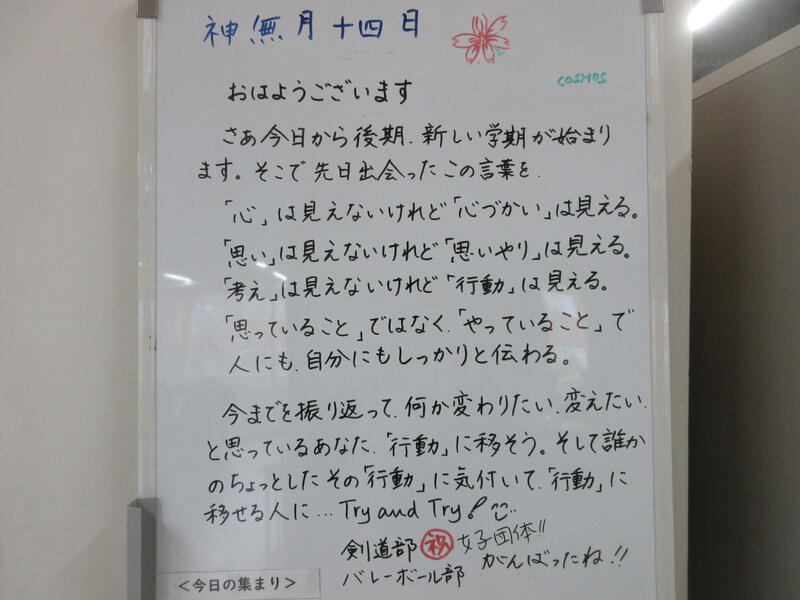 神無月十四日
COSMOS
おはようございます
さあ今日から後期、新しい学期が始まり
ます。そこで先日出会ったこの言葉を、
「心」は見えないけれど「心づかい」は見える。
「思い」は見えないけれど「思いやり」は見える。
「考え」は見えないけれど「行動」は見える。
「思っていること」ではなく、「やっていること」で
人にも、自分にもしっかりと伝わる。
今までを振り返って、何か変わりたい、変えたい、
と思っているあなた、「行動」に移そう。そして誰か
のちょっとしたその「行動」に気付いて、「行動」に
移せる人に…Try and Try!
剣道部 祝 女子団体!!
バレーボール部 がんばったね!!
<今日の集まり>